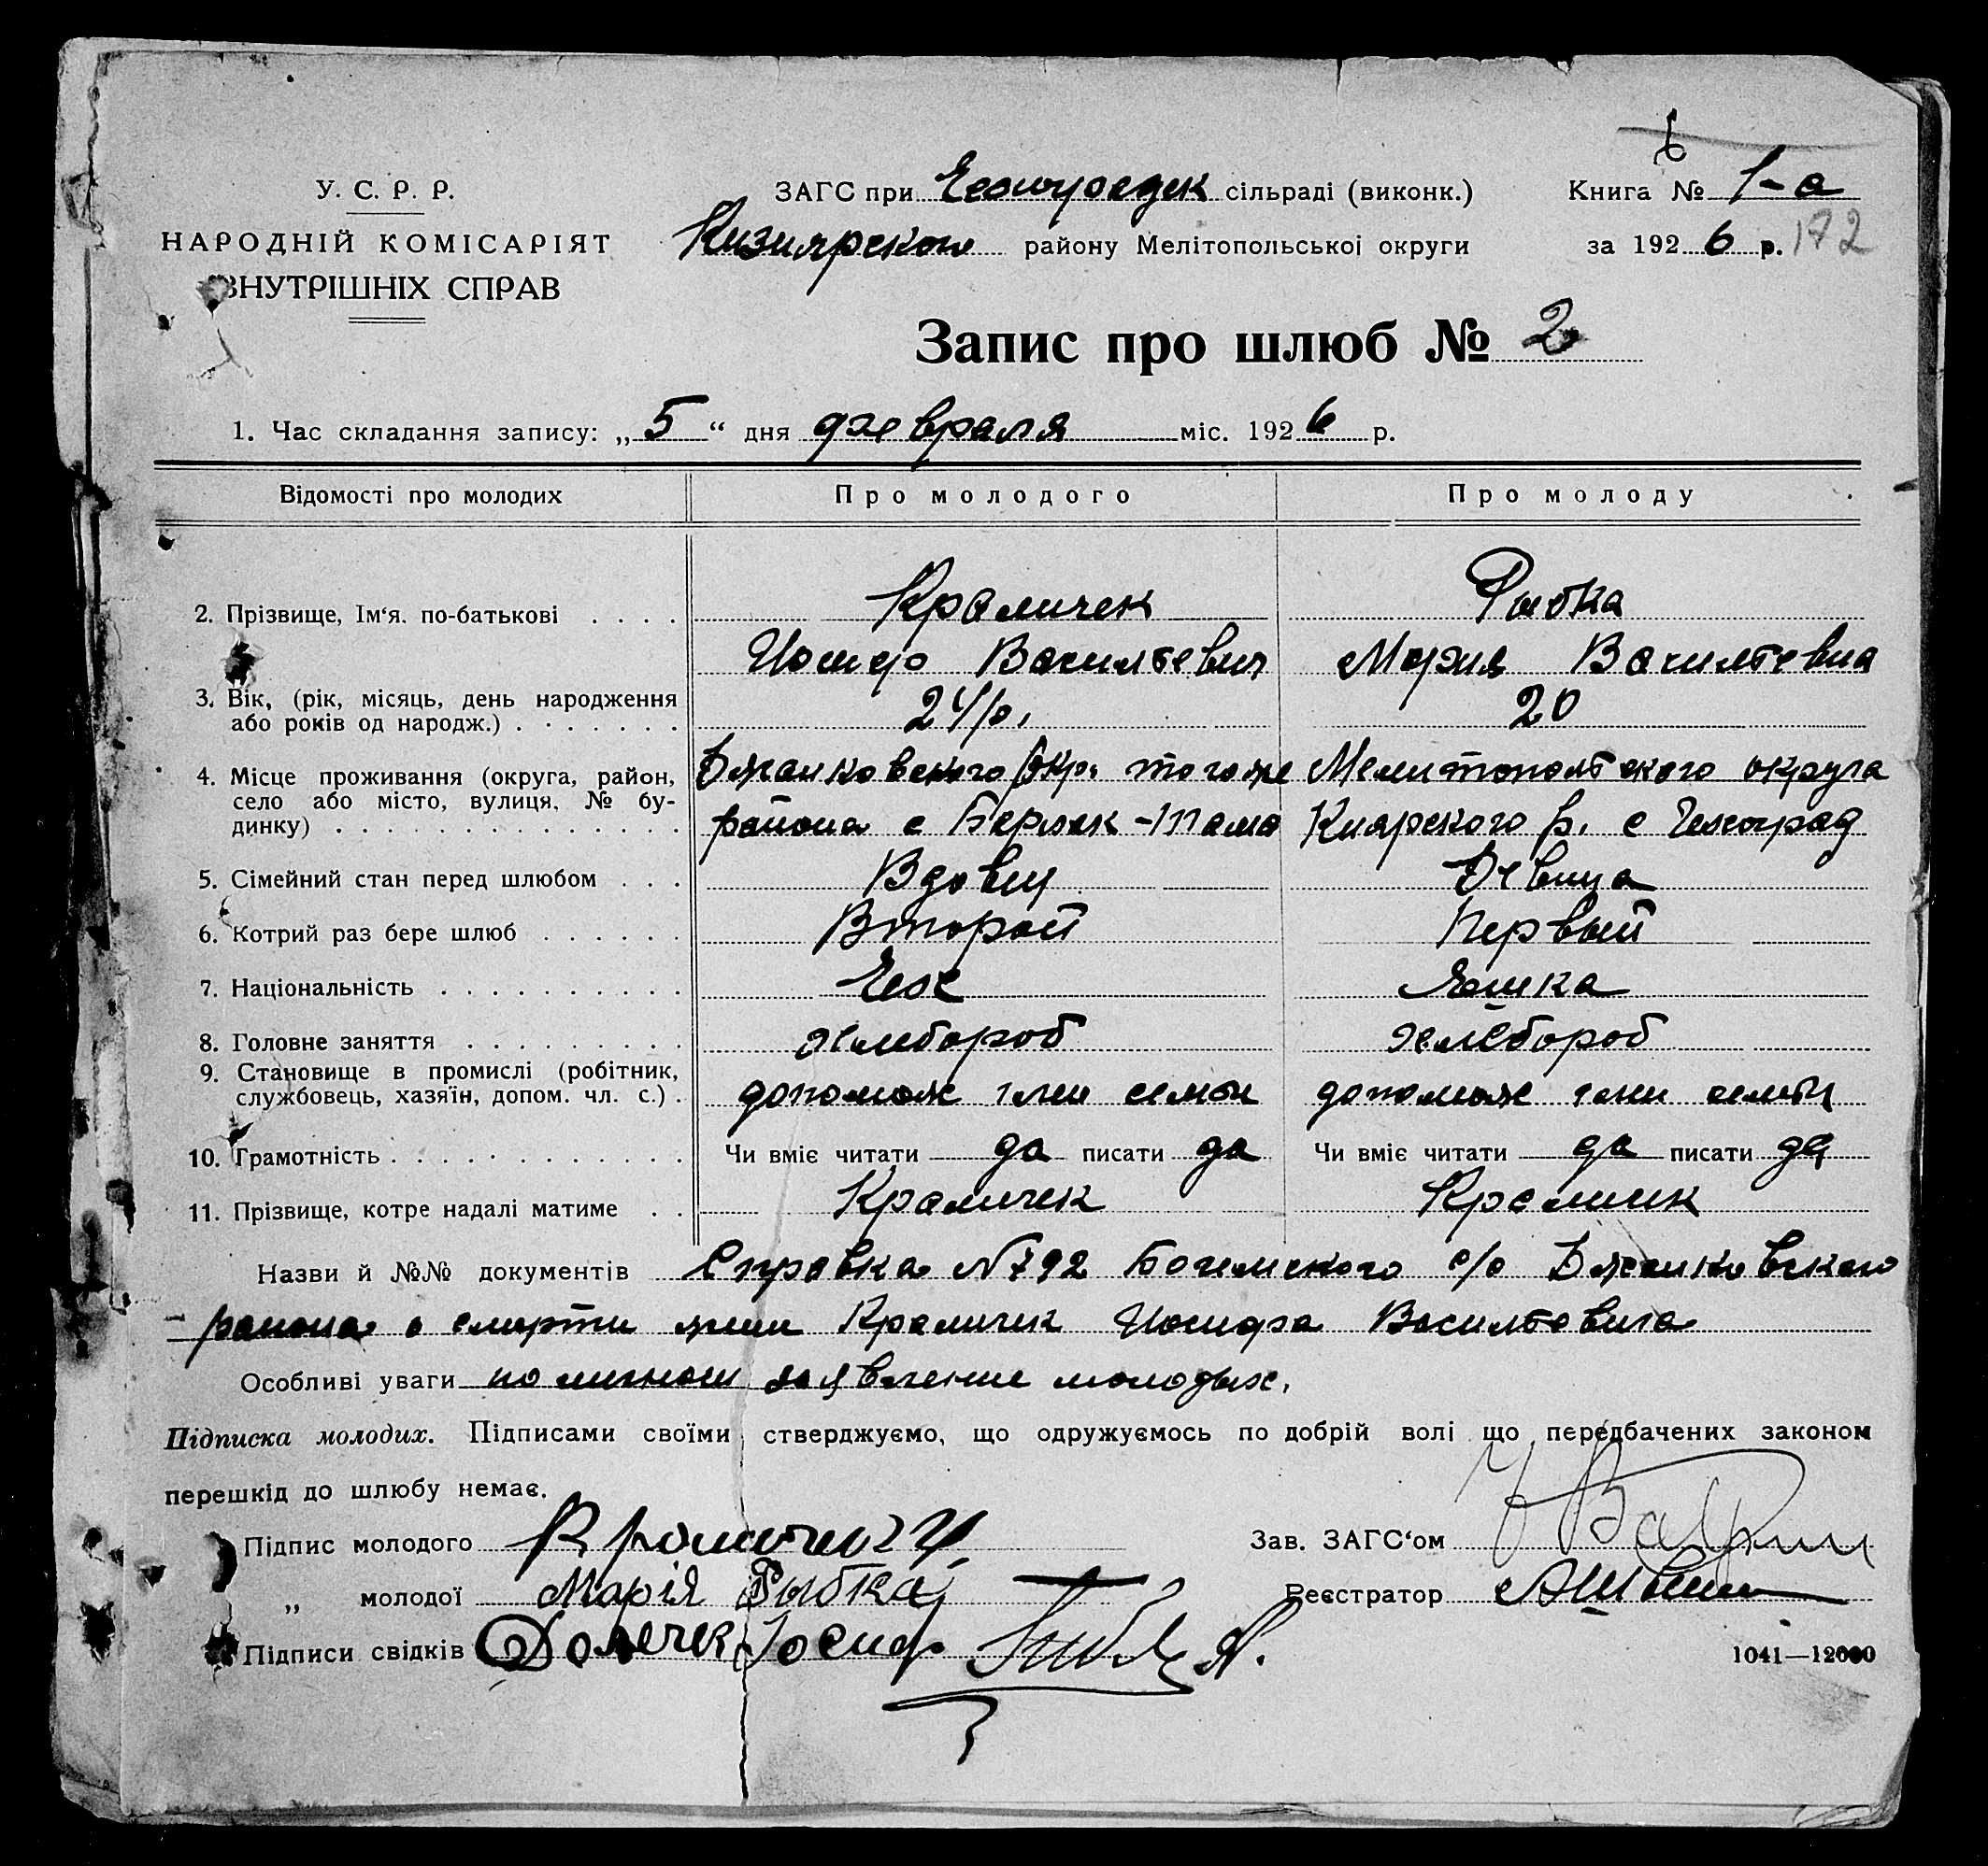 У. С. Р. Р.
НАРОДНІЙ КОМІСАРІЯТ
ВНУТРІШНІХ СПРАВ
ЗАГС при сільраді (виконк.)
Кизиярского району Мелітопольської округи
Книга № 1-а
за 1926 р. 172
Запис про шлюб № 2
1. Час складання запису: „5“ дня февраля міс. 1926 р.
Відомості про молодих Про молодого Про молоду
2. Прізвище, Ім‘я. по-батькові . . . . Краличек Рыбка
Иосиф Васильевич Мария Васильевна
3. Вік, (рік, місяць, день народження
або років од народж.) . . . . . . . 24 р. 20
4. Місце проживання (округа, район,
село або місто, вулиця, № бу-
динку) . . . . . . . . . . . . . .
Джанковского Окр. того же Мелитопольского округа
района с Киярского р. с Чехоград
5. Сімейний стан перед шлюбом . . . Вдовец Девица
6. Котрий раз бере шлюб . . . . . . Второй Первый
7. Національність . . . . . . . . . . Чех Чешка
8. Головне заняття . . . . . . . . . хлебороб хлебороб
9. Становище в промислі (робітник,
службовець, хазяїн, допом. чл. с.) . допомож член семьи допомож член семьи
10. Грамотність . . . . . . . . . . . . . Чи вміє читати да писати да Чи вміє читати да писати да
11. Прізвище, котре надалі матиме . . Краличек
Назви й №№ документів Справка №792 Богемского с/с Джанковского
района о смерти жени Краличек Иосифа Васильевича
Особливі уваги по личном заявление молодых.
Підписка молодих. Підписами своїми стверджуємо, що одружуємось по добрій волі що передбачених законом
перешкід до шлюбу немає.
Підпис молодого Зав. ЗАГС‘ом
„ молодої Марія Рыбка Реєстратор
Підписи свідків Долечек Іосиф
1041—12000